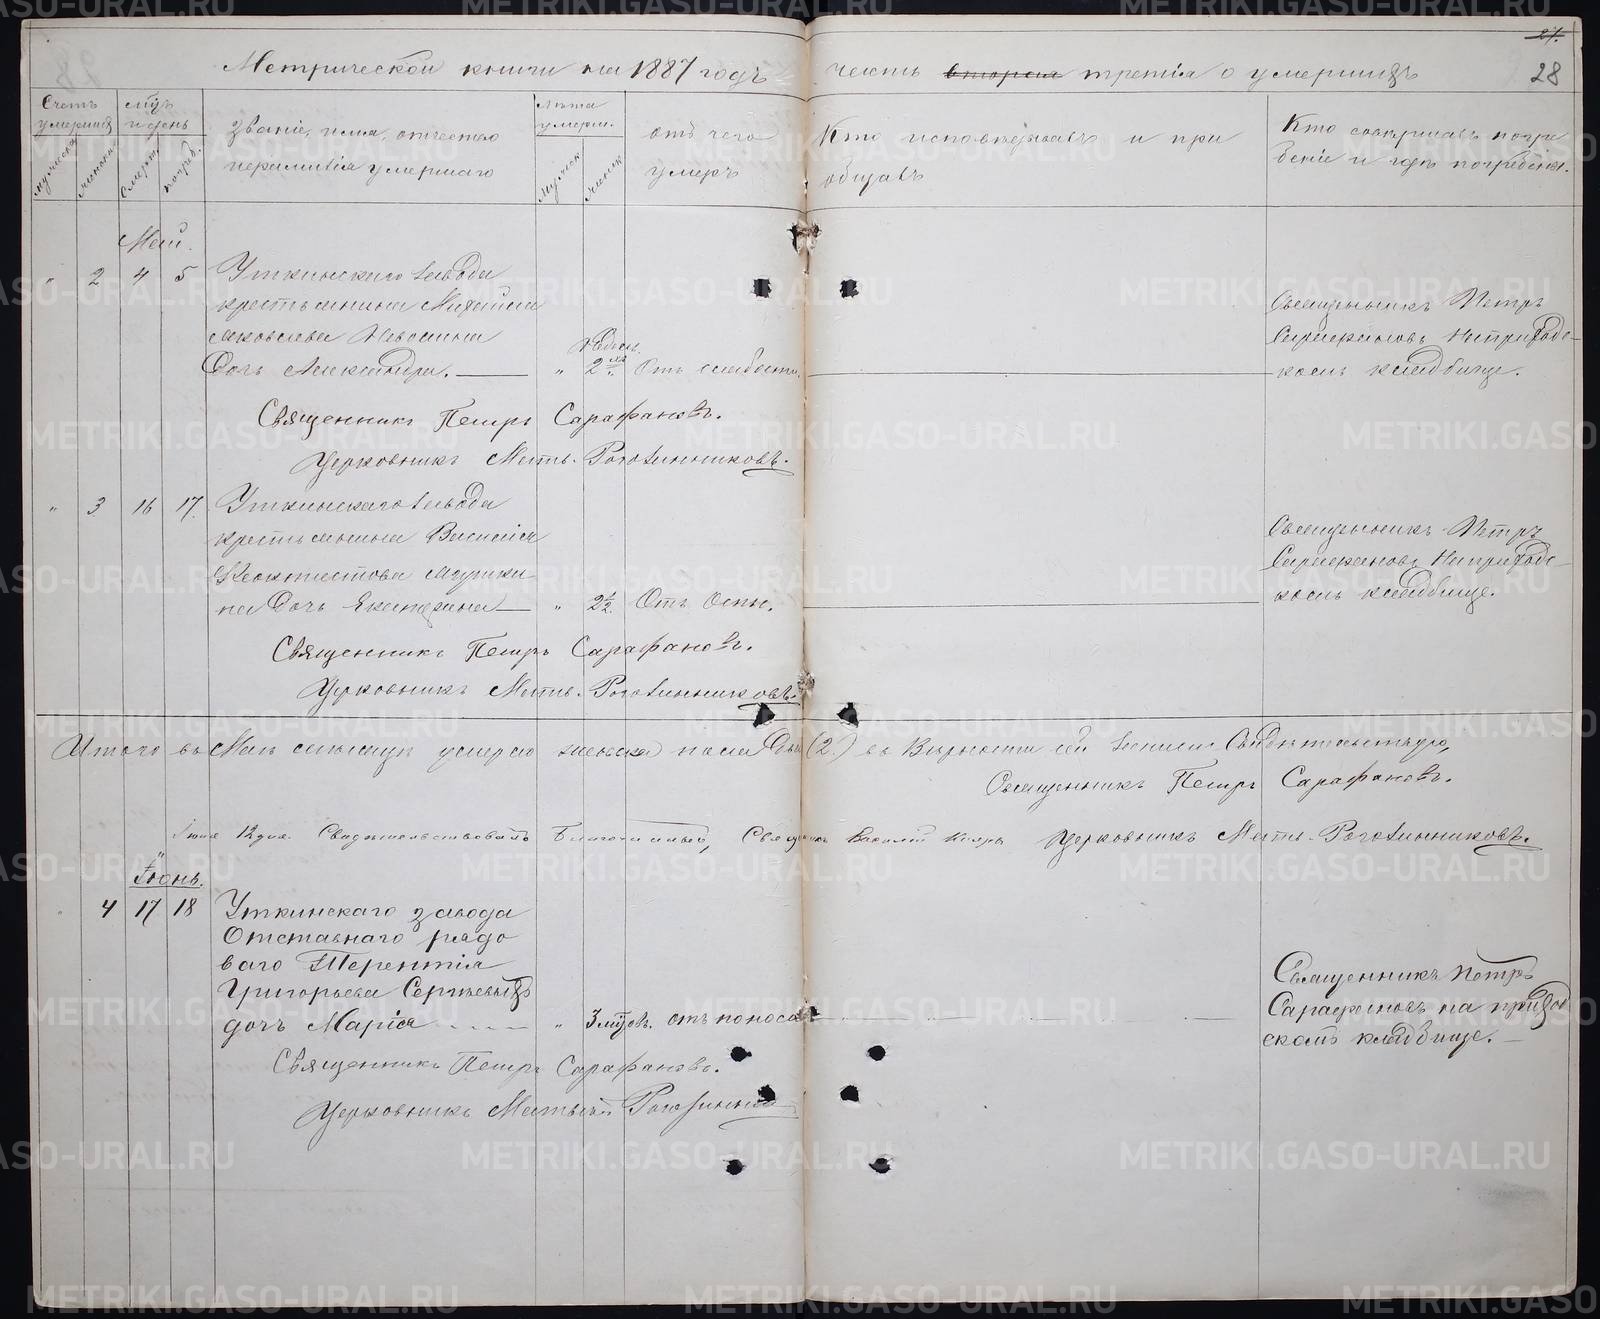 Метрической книги на 1887 годъ часть вторая третія о умершихъ
27.
28
Счетъ умершихъ
мужеска
женска
мцъ и день
смерти
погреб.
Званіе, имя, отчество
и фамилія умершаго
Лѣта умерш.
мужск
женск
отъ чего
умеръ
Кто исповѣдывалъ и при
общалъ
Кто совершалъ погре
беніе и гдѣ погребены.
Май.
" 2 4 5 Уткинскаго завода
крестьянина
Яковлева
Дочь Александра. " 2 Отъ слабости.
Недѣл.
Священникъ Петръ
Сарафановъ На приход-
комъ кладбище.
Священникъ Петръ Сарафановъ.
Церковникъ Матв. Рогозинниковъ.
" 3 16 17. Уткинскаго завода
крестьянина Василія
Феоктистова
на Дочь Екатерина " 2½ Отъ Оспы.
Священникъ Петръ
Сарафановъ На приход-
комъ кладбище.
Священникъ Петръ Сарафановъ.
Церковникъ Матв. Рогозинниковъ.
Итого въ Маѣ мѣсяцѣ умерло женска пола Два (2.) въ Верности сей записи Свидѣтельствую,
Священникъ Петръ Сарафановъ.
Іюня 12 дня. Свидѣтельствовалъ Благочинный, Священникъ Василій Церковникъ Матв. Рогозинниковъ.
Іюнь.
4 17 18 Уткинскаго завода
Отставнаго рядо
ваго Терентія
Григорьева Сергѣевыхъ
дочь Марія " 3 мцов. отъ поноса
Священникъ Петръ
Сарафановъ на приход
скомъ кладбище.
Священникъ Петръ Сарафановъ.
Церковникъ Матвѣй
METRIKI.GASO-URAL.RU